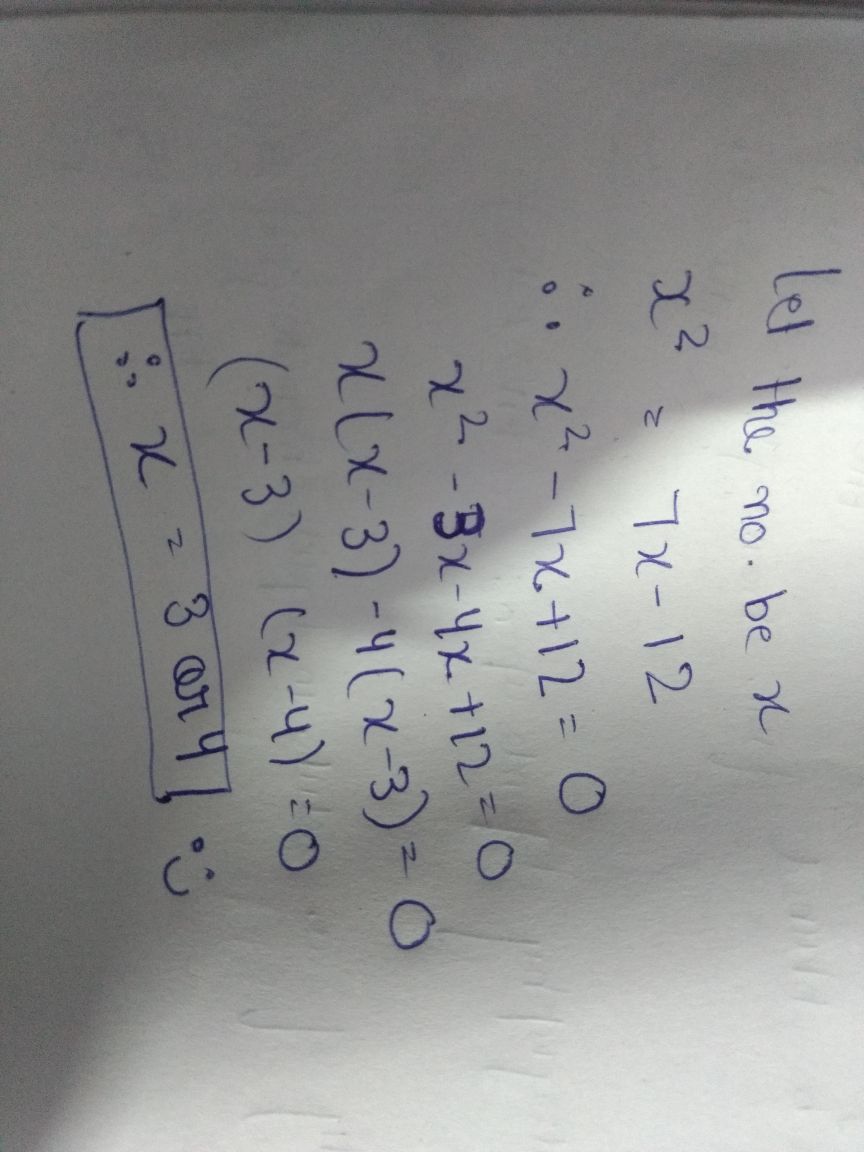 Let the no. be x
x² = 7x-12
∴ x²-7x+12=0
x²-3x-4x+12=0
x(x-3)-4(x-3)=0
(x-3) (x-4)=0
∴ x = 3 or 4